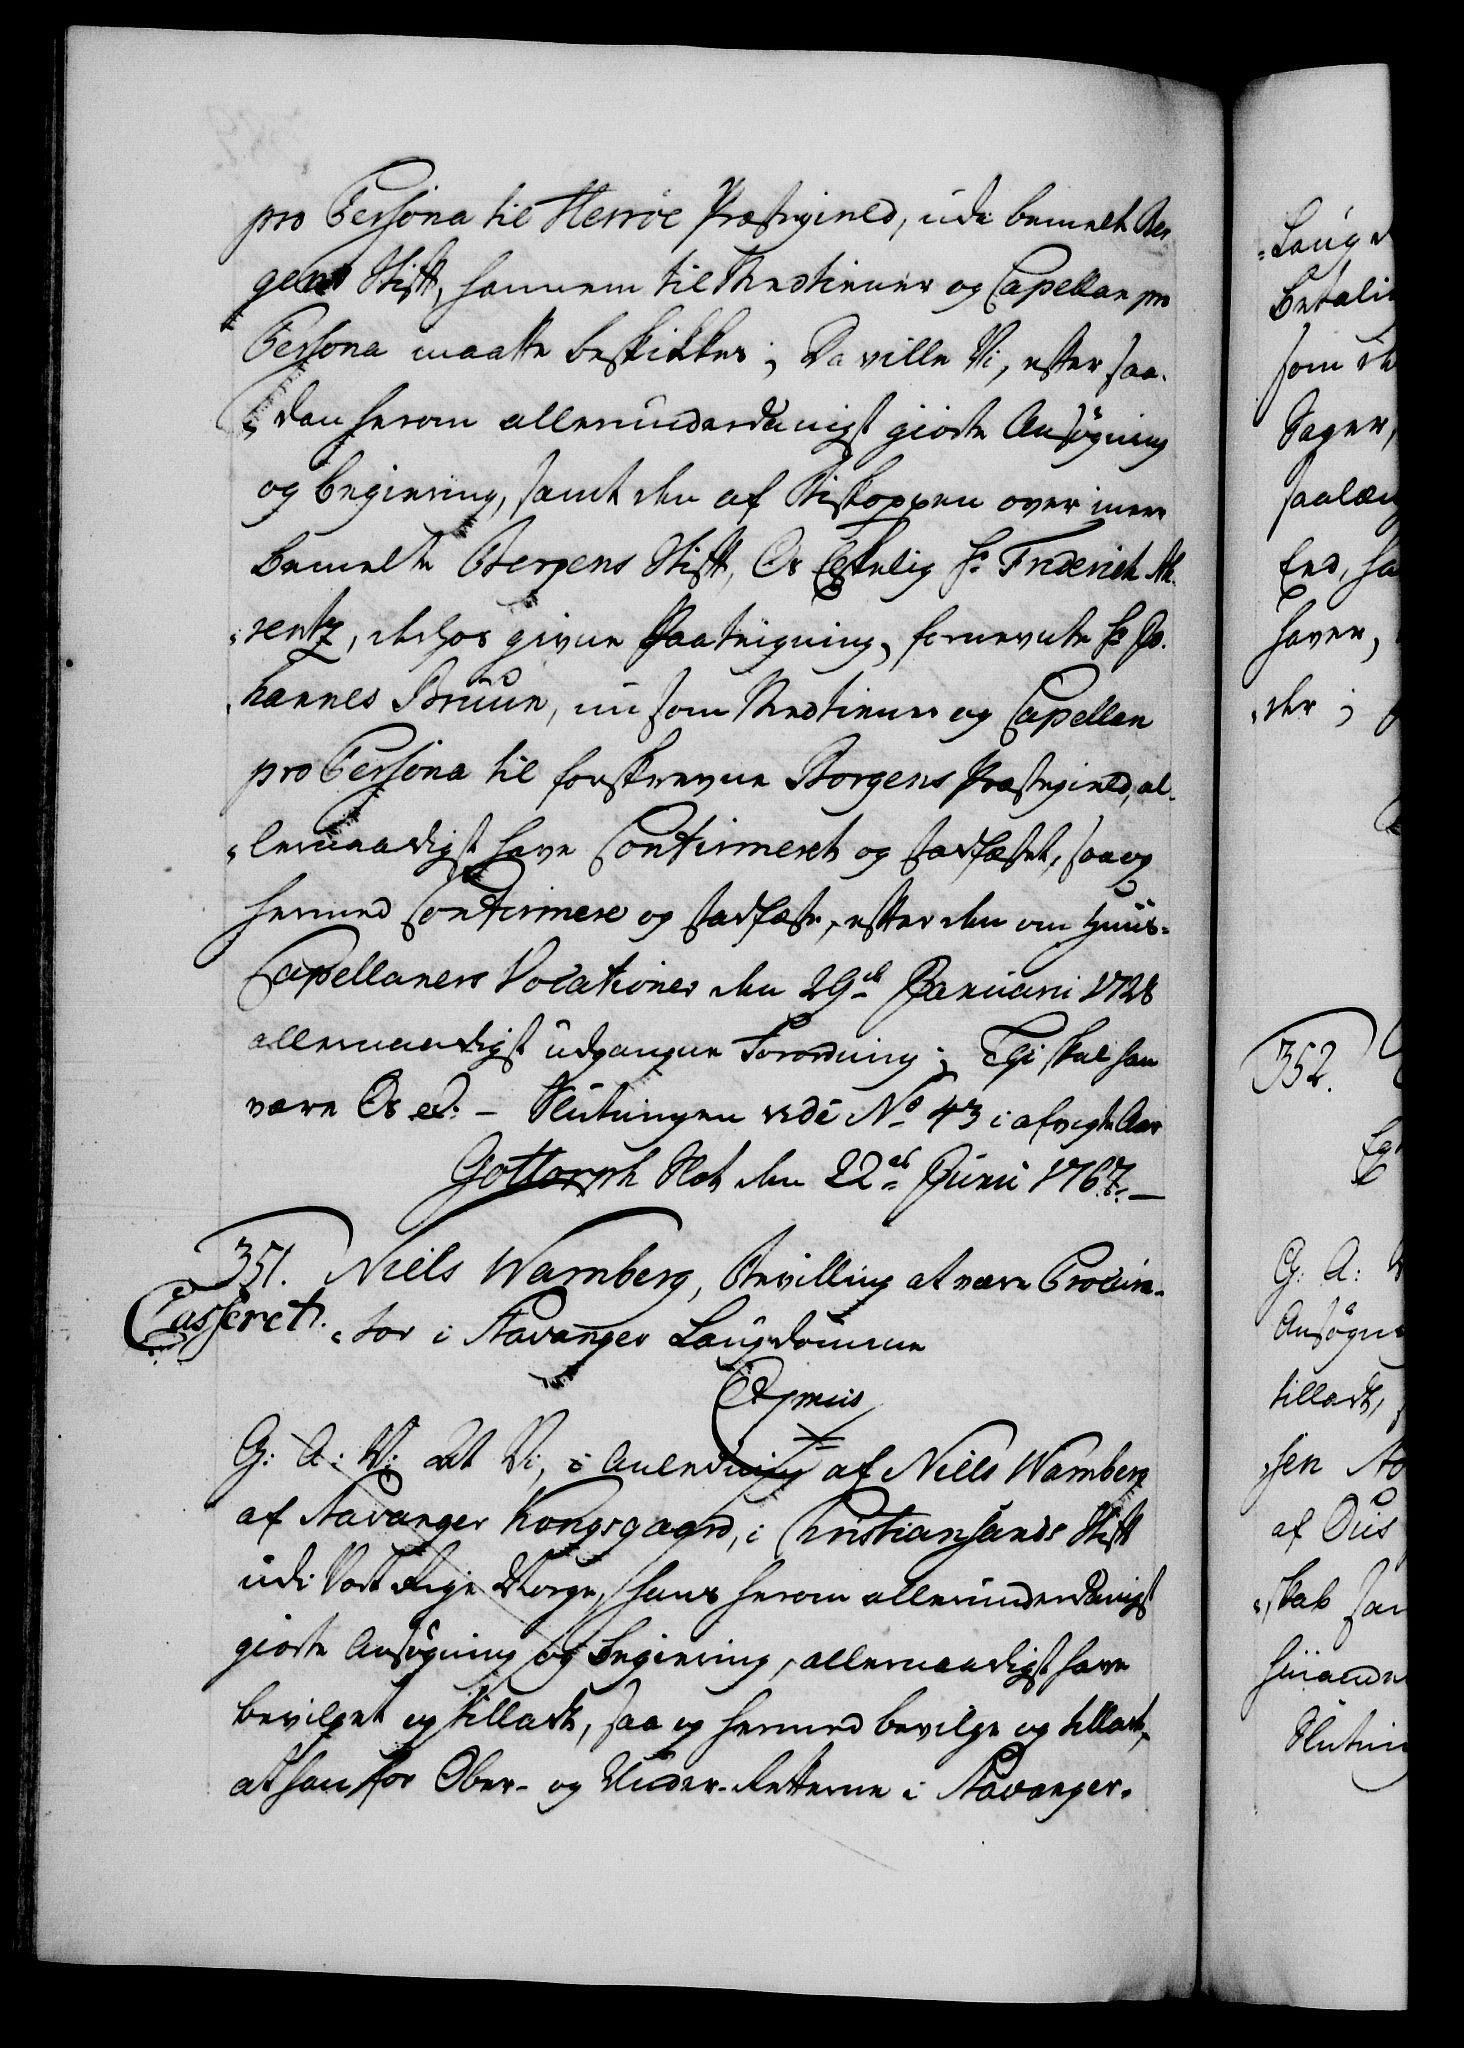 pro Persona til Herröe Præstegield, udi bemelt Ber
gens Stift, hannem til Medtiener og Capellan pro
Persona maatte beskikkes; Da ville Vi, efter saa-
dan herom allerunderdanigst giorte Ansögning
og begiering, samt den af Biskoppen over meer
bemelte Bergens Stift, Os Elskelig Hr Friderich Ah-
rentz, derhos givne Paategning, fornevnte Hr Jo-
hannes Bruun, nu som Medtiener og Capellan
pro Persona til forskrevne Præstegield, al-
lernaadigst have Confirmeret og stadfæstet, saa og
hermed Confirmere og stadfæste, efter den om Huus-
Capellaners Vocationer den 29de Januarii 1728
allernaadigst udgangne Forordning; Thi skal han
være Os ed: - Slutningen vide No 43 i afvigte Aar
Gottorph Slot den 22de Junii 1767. —
351. Niels Wamberg, Bevilling at være Procura-
Casseret. tor i Stavanger Laugdömme
Expmus
G: A: V: At Vi, i Anledning af Niels Wamberg
af Stavanger Kongsgaard, i Christiansands Stift
udi Vort Rige Norge, hans herom allerunderdanigst
giorte Ansögning og begiering, allernaadigst have
bevilget og tilladt, saa og hermed bevilge og tillade,
at han for Ober- og Under-Retterne i Stavanger-
Betali
som
Sager,
saalæn
haver,
352.
G: A: V
Ansögni
tilladt,
sen
af
skab
Slutni